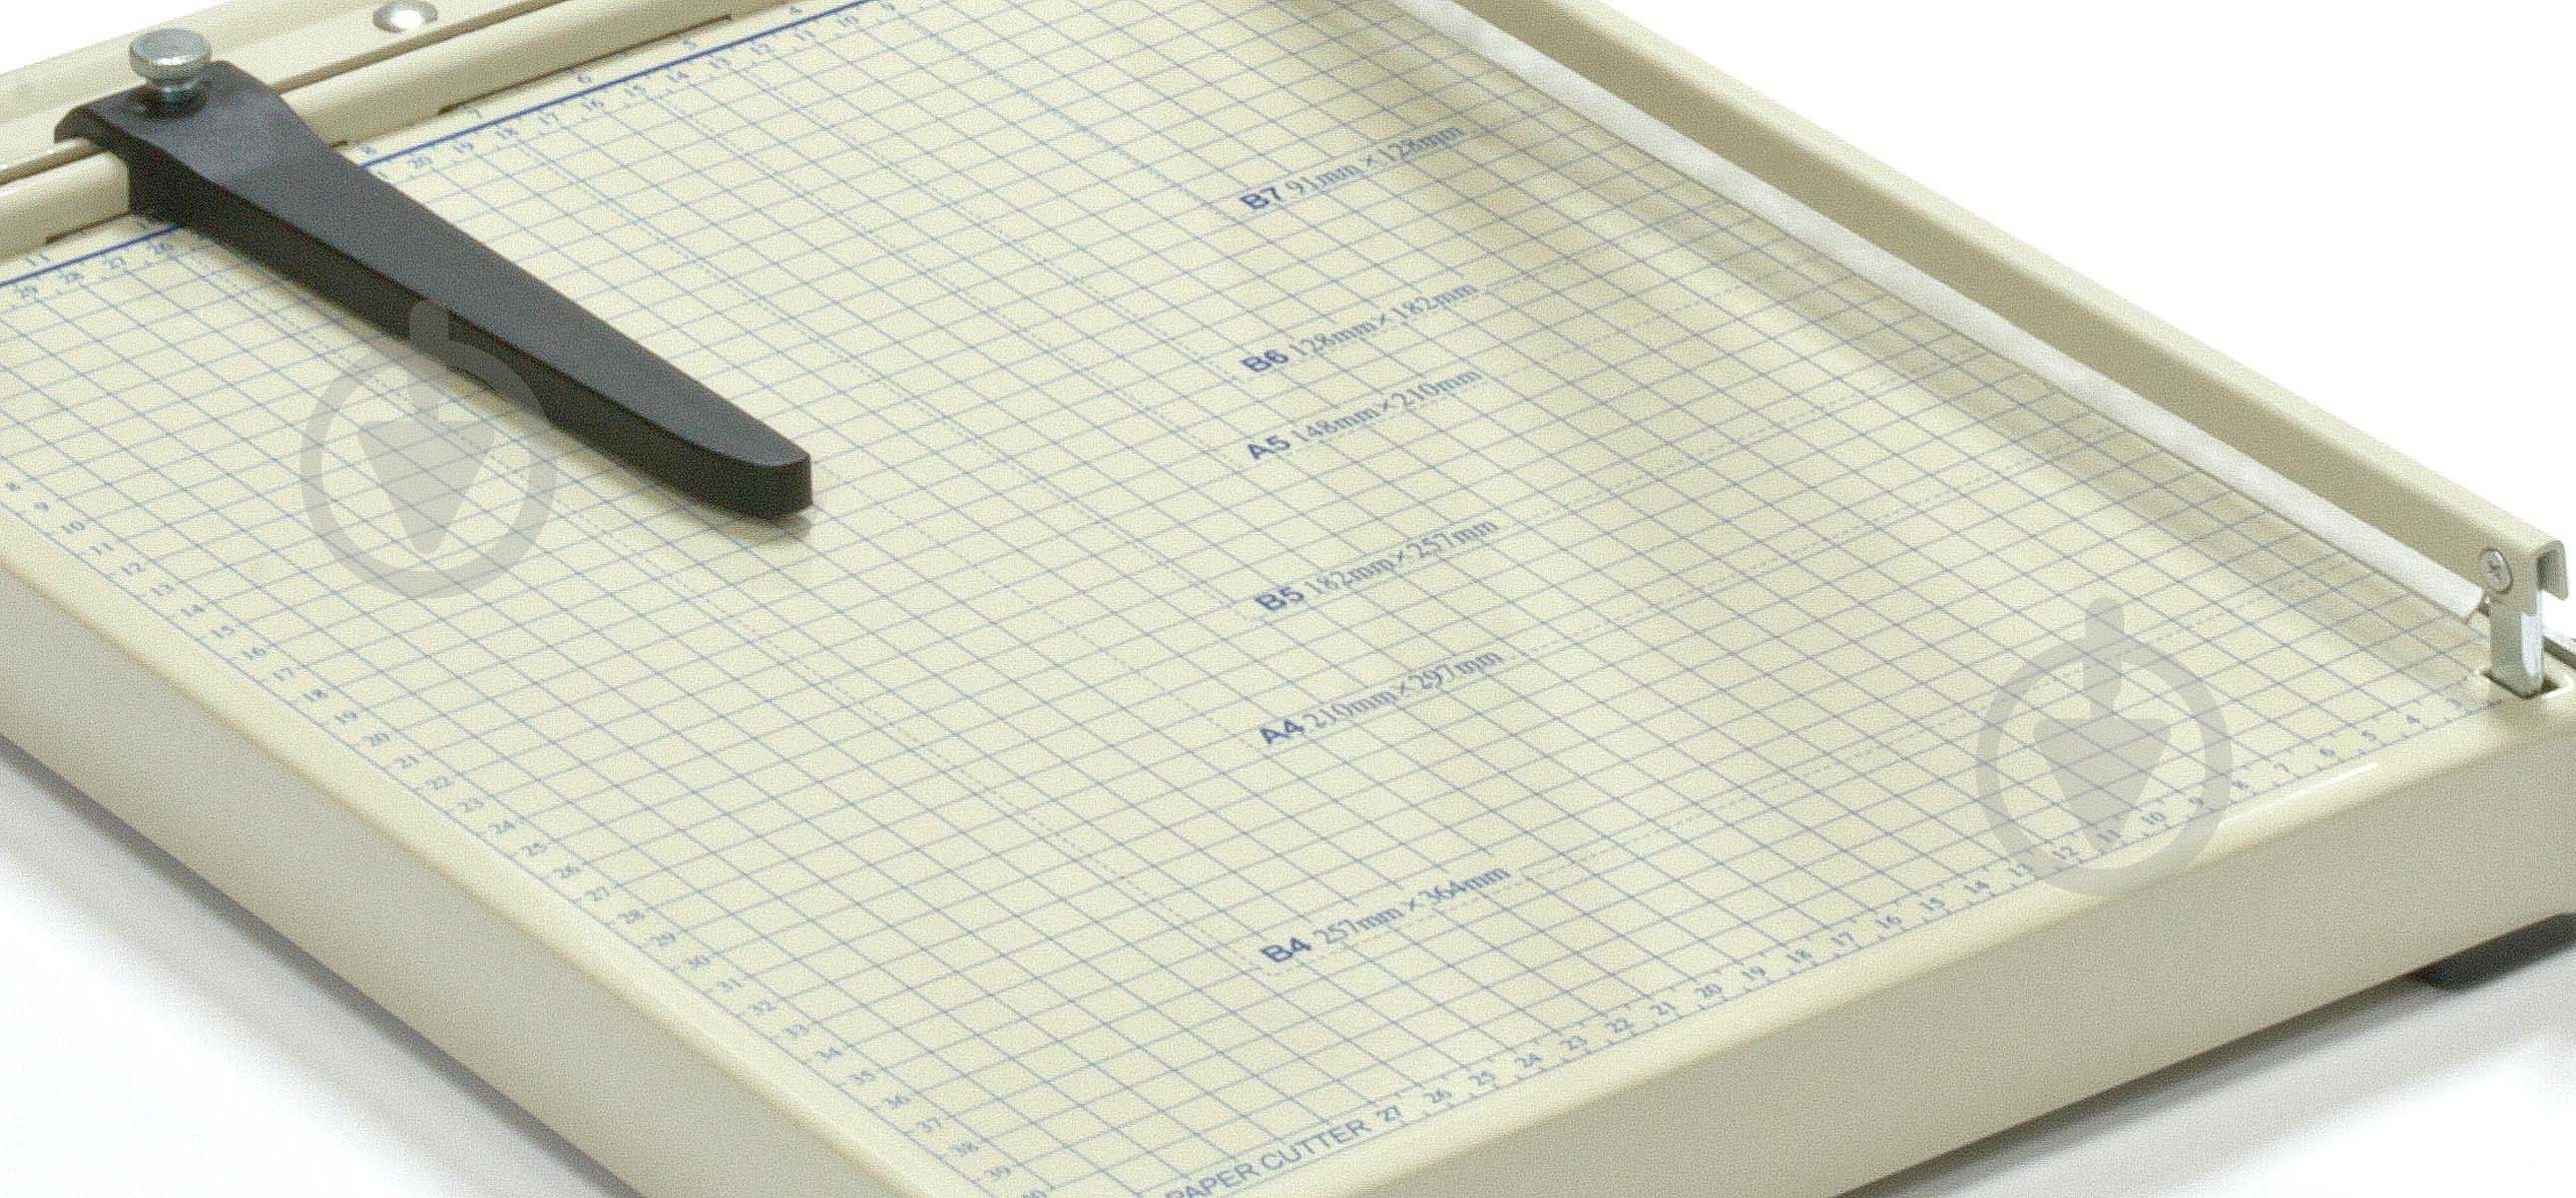 4 10 9
5 14 13 12 11
6 17 16 15
7 20 19 18
8
11 29 28 27 26
B7 91mm × 128mm
B6 128mm × 182mm
A5 148mm × 210mm
B5 182mm × 257mm
A4 210mm × 297mm
B4 257mm × 364mm
8
9
10
11
12
13
14
15
16
17
18
19
20
21
22
23
24
25
26
27
28
29
30
31
32
33
34
35
36
37
38
39
40
PAPER CUTTER 27 26 25 24 23 22 21 20 19 18 17 16 15 14 13 12 11 10 9 8 7 6 5 4 3